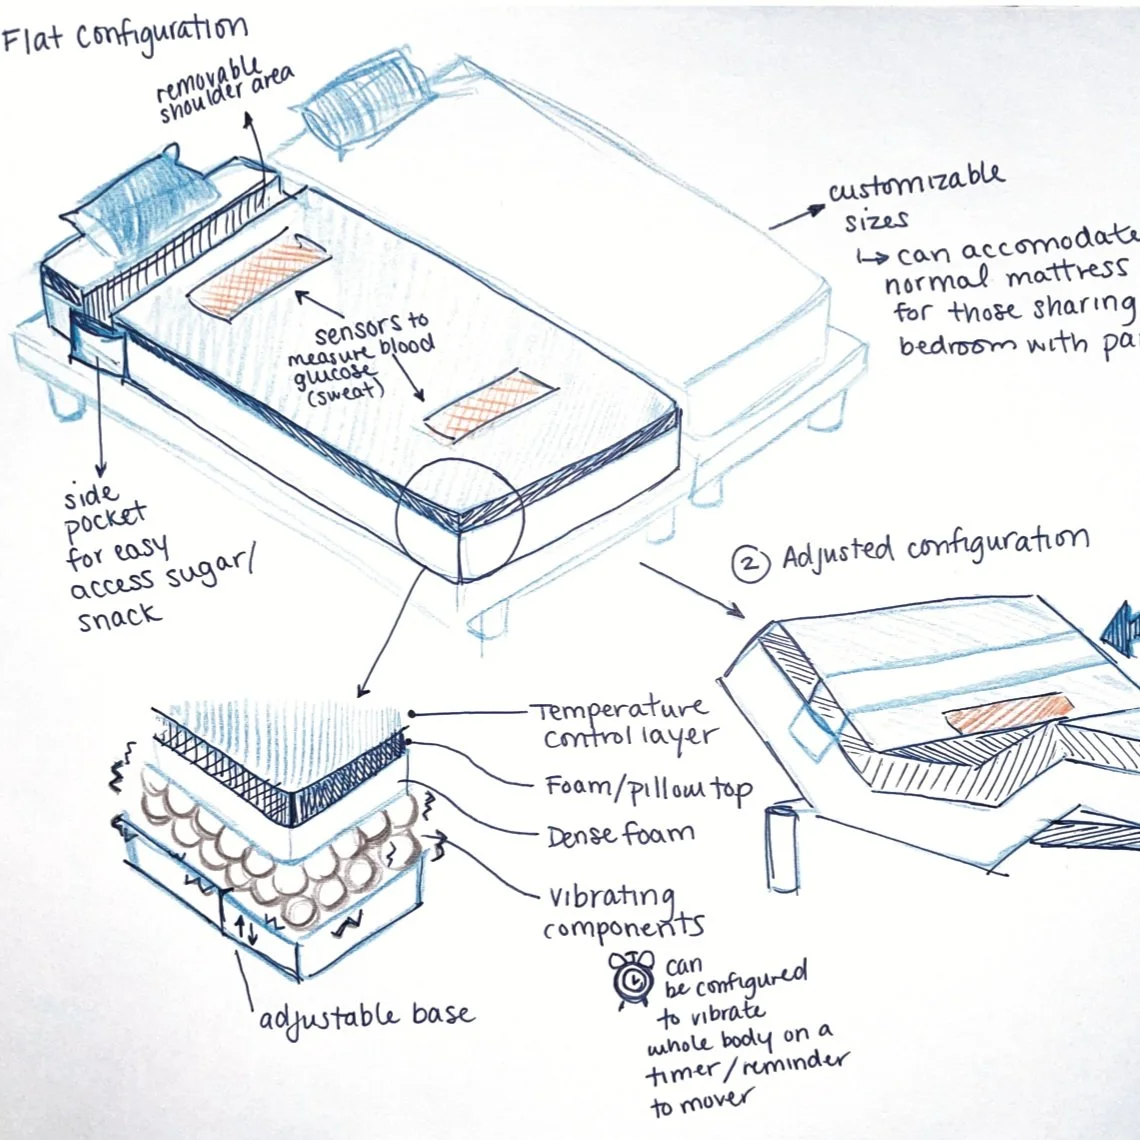 Flat configuration
removable
shoulder area
customizable
sizes
↳ can accomodate
normal mattress
for those sharing
bedroom with
sensors to
measure blood
glucose
(sweat)
side
pocket
for easy
access sugar/
snack
② Adjusted configuration
Temperature
control layer
Foam/pillow top
Dense foam
vibrating
components
can
be configured
to vibrate
whole body on a
timer/reminder
to mover
adjustable base